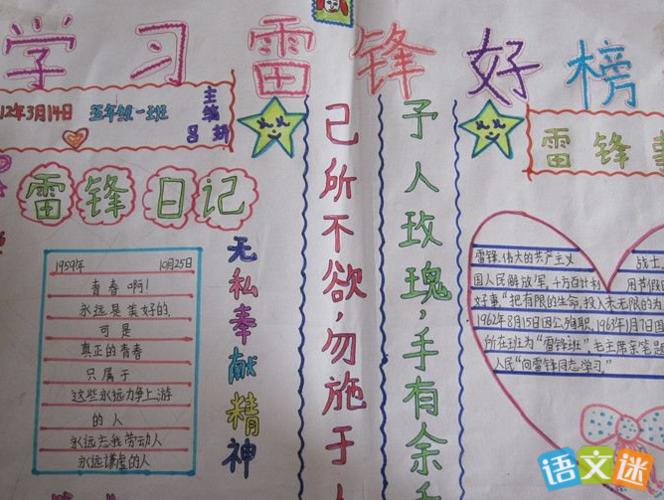 学习雷锋好榜
12年3月14日 五年级一班
主编
吕妍
雷锋日记
1959年 10月25日
青春啊!
永远是美好的,
可是
真正的青春
只属于
这些永远力争上游
的人
永远忘我劳动人
永远谦虚的人
无私奉献精神
己所不欲,勿施于人
予人玫瑰,手有余
雷锋
雷锋,伟大的共产主义 战士,
国人民解放军,千方百计 用节假
好事。"把有限的生命,投入未无限的为
1962年8月15日因公殉职,1963年1月7日国
所在班为"雷锋班",毛主席亲笔题
人民"向雷锋同志学习"
语文迷